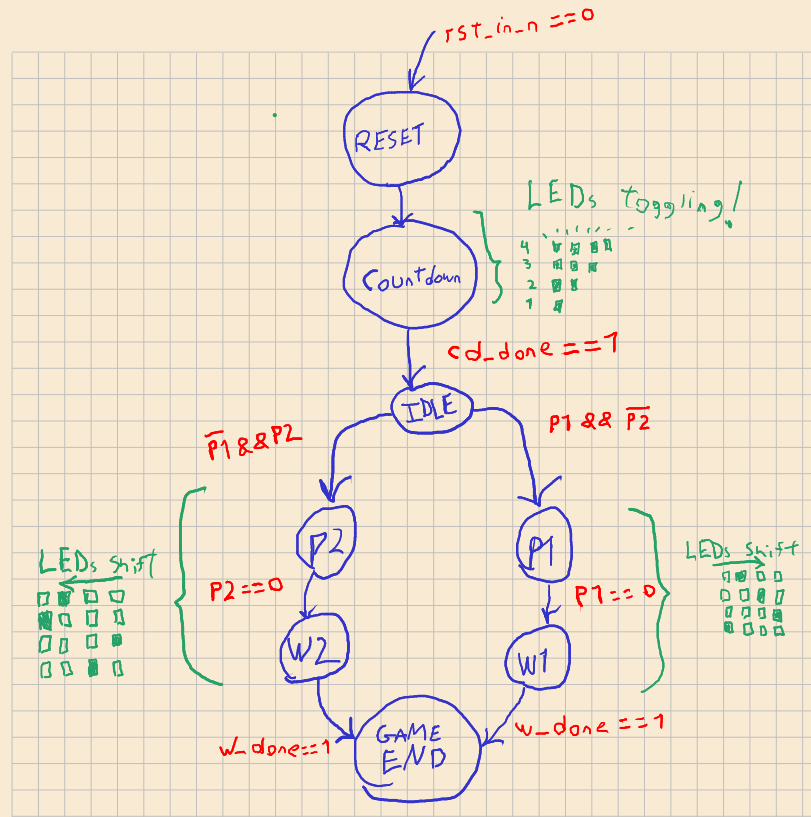 rst_in_n ==0
RESET
LEDs toggling!
4
3
2
1
Countdown
cd_done ==1
IDLE
P1̅ && P2
P1 && P2̅
P2
P1
LEDs shift
LEDs shift
P2==0
P1==0
W2
W1
w_done==1
w_done==1
GAME
END